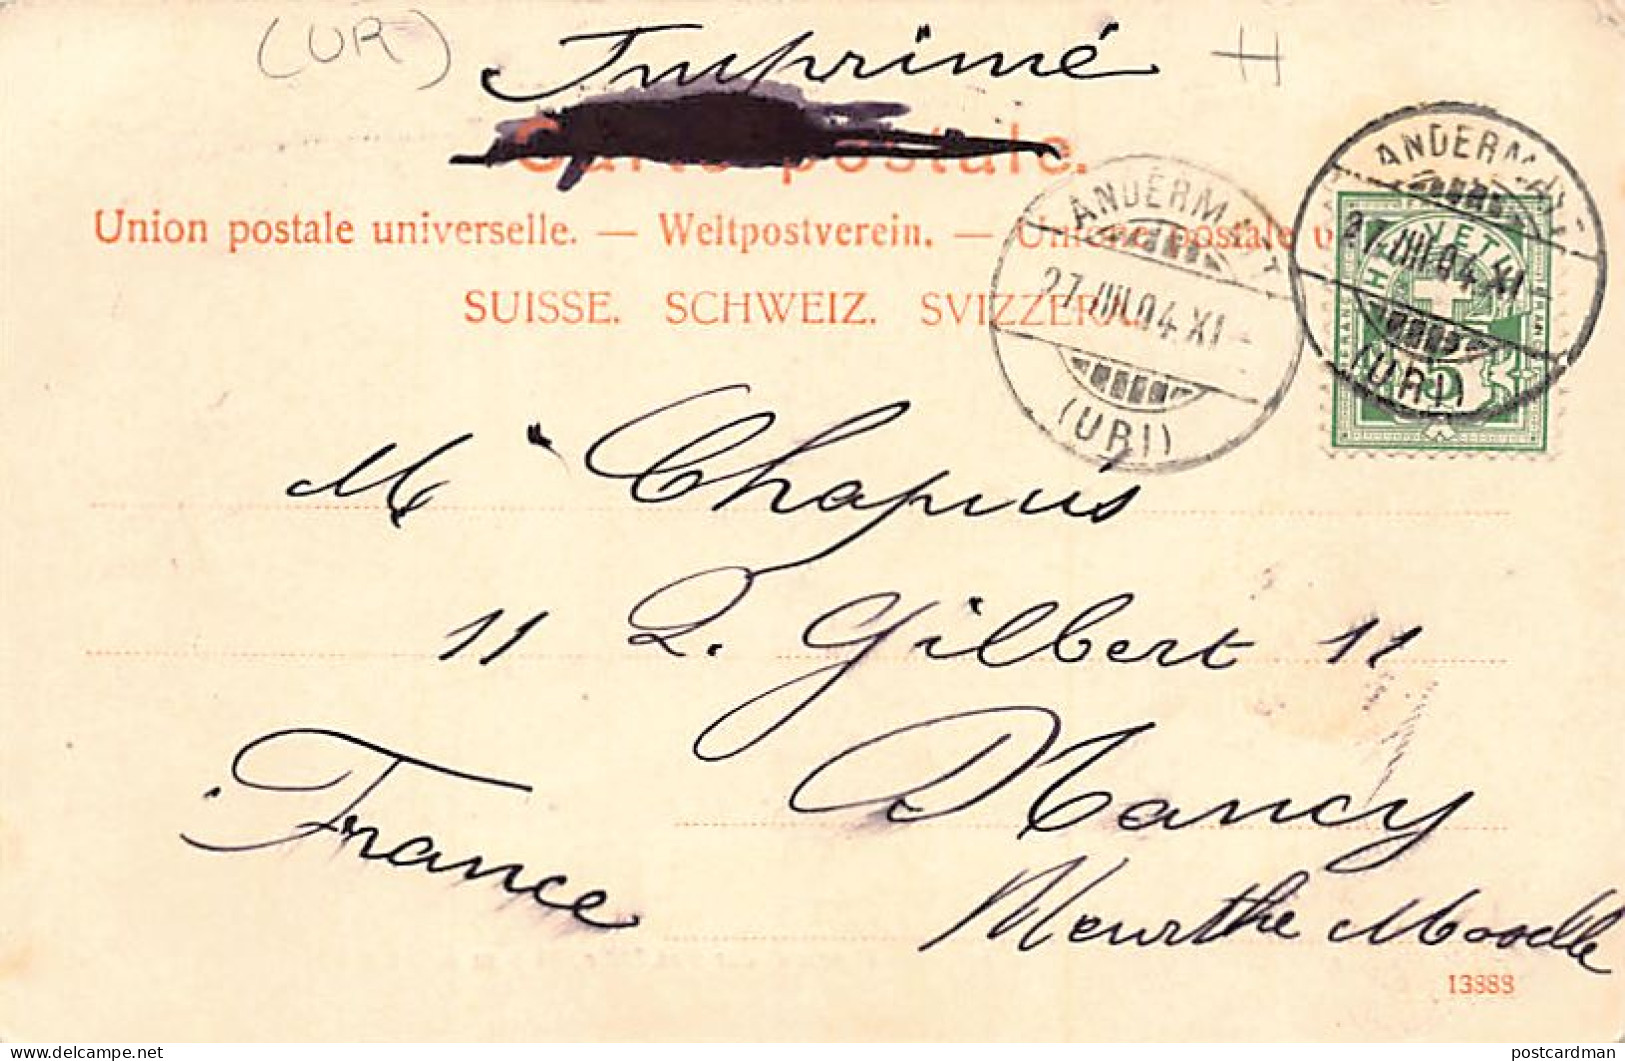 (UR)
Imprimé
H
Carte postale.
Union postale universelle. — Weltpostverein. — Unione postale u
SUISSE. SCHWEIZ. SVIZZERA.
ANDERMATT
27.VIII.04.XI
(URI)
ANDERMATT
27.VIII.04.XI
(URI)
HELVETIA
FRANCO
5
M Chapuis
11 R. Gilbert 11
Nancy
France
Meurthe Moselle
13888
postcardman